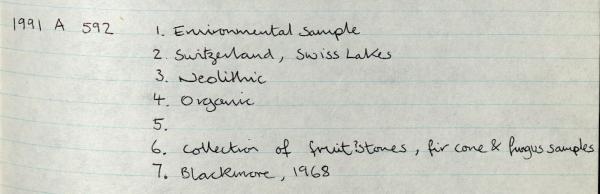 1991 A 592 1. Environmental sample
2. Switzerland, Swiss Lakes
3. Neolithic
4. Organic
5.
6. Collection of fruit?stones, fir cone & fungus samples
7. Blackmore, 1968